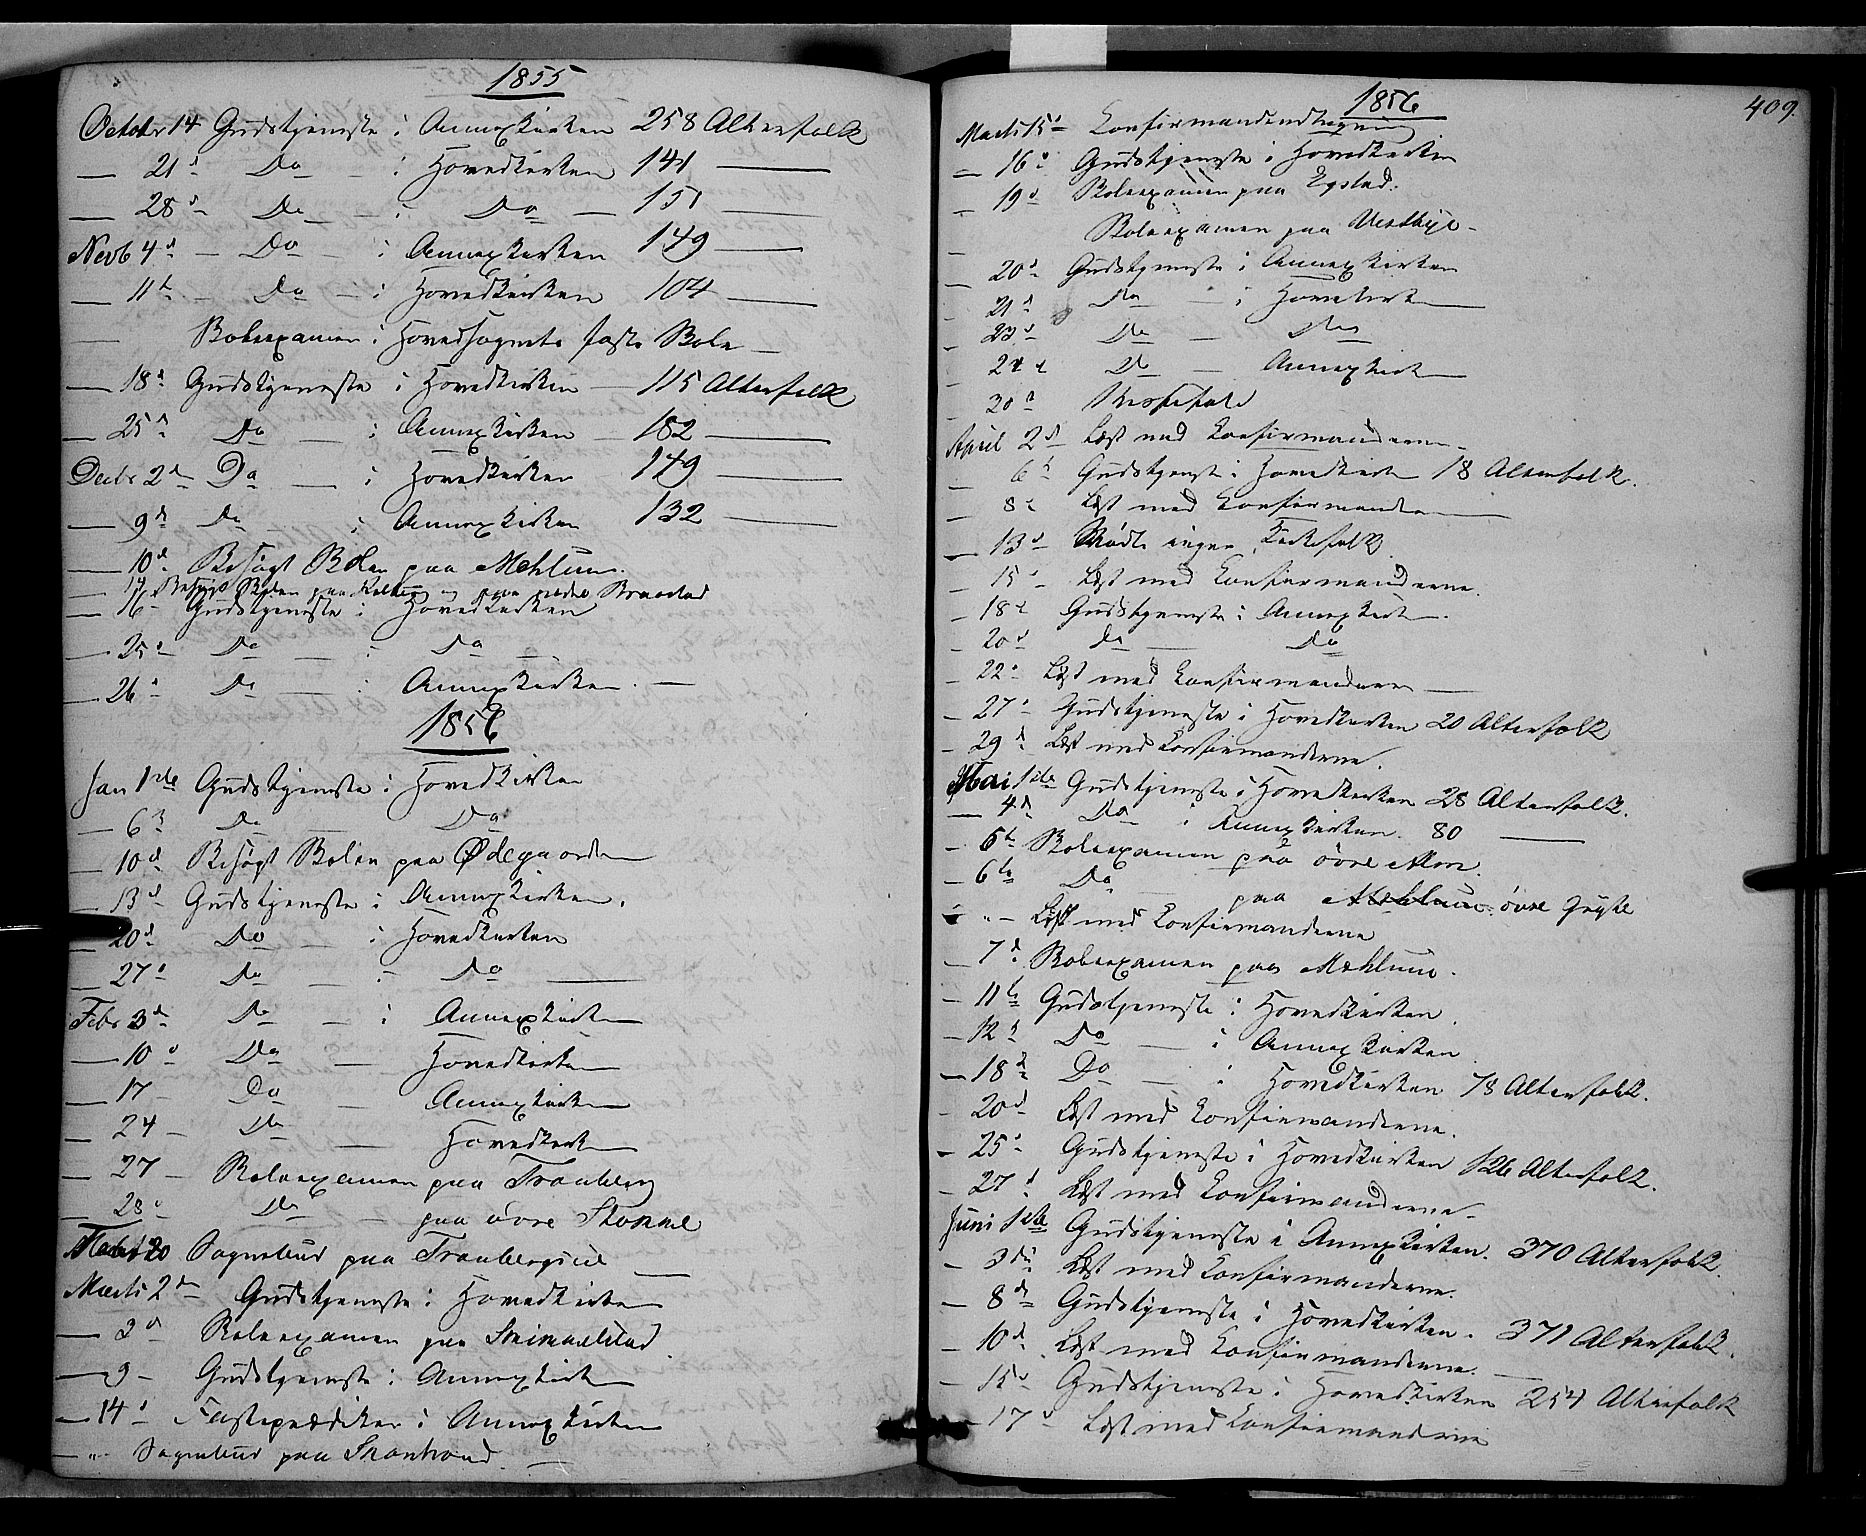 1855
Octobr 14 Gudstjeneste i Annexkirken 258 Altersfolk
— 21d Do — i Hovedkirken 141 —
— 28d Do — i Do — 151 —
Novb 4d — Do — i Annexkirken 149 —
— 11te — Do — i Hovedkirken 104 —
— Skoleexamen i Hovedsognets faste Skole —
— 18d Gudstjeneste i Hovedkirken — 115 Altersfolk
— 25d Do — i Annexkirken — 182 —
Decbr 2d Do — i Hovedkirken 149 —
— 9d Do i Annexkirken 132 —
— 10d Besøgt Skolen paa Mehlum.
— 14 Besøgt Skolen paa og paa nedre Braastad
— 16 — Gudstjeneste i Hovedkirken
— 25d Do — i Do —
— 26d Do — i Annexkirken —
1856
Jan 1ste Gudstjeneste i Hovedkirken
— 6te Do — Do
— 10d Besøgt Skolen paa Ødegaarden
— 13d Gudstjeneste i Annexkirken.
— 20d Do — i Hovedkirken
— 27d Do — i Do —
Febr 3d Do — i Annexkirken
— 10d Do — Hovedkirken
— 17 — Do — Annexkirken
— 24 — Do — Hovedkirk
— 27 — Skoleexamen paa Tranberg
— 28d Do — paa øvre Stokke
20 Sognebud paa Tranbergeiet —
Marts 2den Gudstjeneste i Hovedkirken
— 3d Skoleexamen paa Smimmelstad.
— 9 — Gudstjeneste i Annexkirken
— 14d Fasteprædiken i Annexkirken
— " Sognebud paa —
1856
409.
Marts 15d Konfirmandindtegning
— 16d Gudstjeneste i Hovedkirken
— 19d Skoleexamen paa Egstad.
— Skoleexamen paa Vestbye —
— 20d Gudstjeneste i Annexkirken
— 21d Do — i Hovedkirk
— 23d Do — Do
— 24d Do — Annexkirk
— 30d Messefald
April 2d Læst med Konfirmanderne —
— 6te Gudstjeneste i Hovedkirken 18 Altersfolk.
— 8d Læst med Konfirmanderne
— 13d Mødte ingen Kirkefolk
— 15d Læst med Konfirmanderne.
— 18d Gudstjeneste i Annexkirk.
— 20d do — Do
— 22d Læst med Konfirmanderne —
— 27d Gudstjeneste i Hovedkirken 20 Altersfolk
— 29d Læst med Konfirmanderne.
Mai 1ste Gudstjeneste i Hovedkirken 28 Altersfolk.
— 4d Do i Annexkirken. 80 —
— 5te Skoleexamen paa øvre Alm.
— 6te Do — paa Mæhlum. øvre
— " — Læst med Konfirmanderne
— 7d Skoleexamen paa Mæhlum.
— 11te Gudstjeneste i Hovedkirken.
— 12te Do — i Annexkirken.
— 18d Do — i Hovedkirken 78 Altersfolk.
— 20d Læst med Konfirmanderne.
— 25d Gudstjeneste i Hovedkirken 126 Altersfolk.
— 27d Læst med Konfirmanderne —
Juni 1ste Gudstjeneste i Annexkirken. 370 Altersfolk.
— 3die Læst med Konfirmanderne.
— 8de Gudstjeneste i Hovedkirken. 371 Altersfolk.
— 10d Læst med Konfirmanderne. —
— 15d Gudstjeneste i Hovedkirken 254 Altersfolk
— 17d Læst med Konfirmanderne